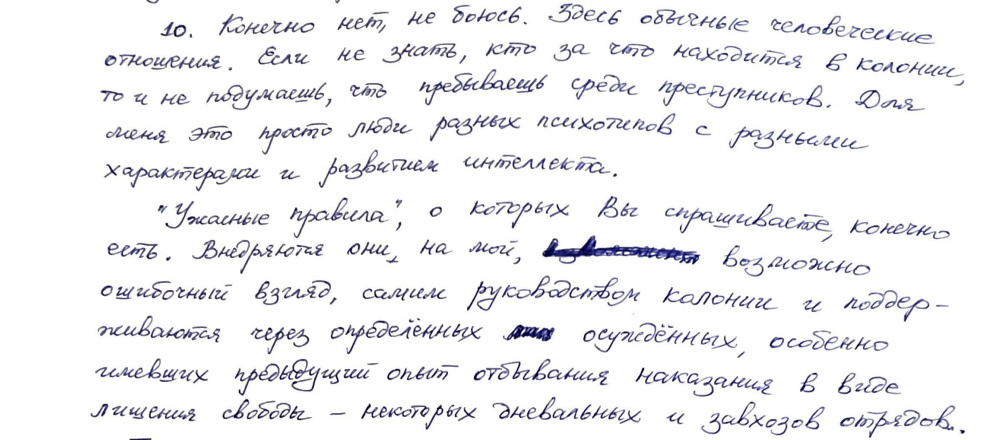 10. Конечно нет, не боюсь. Здесь обычные человеческие
отношения. Если не знать, кто за что находится в колонии,
то и не подумаешь, что пребываешь среди преступников. Для
меня это просто люди разных психотипов с разными
характерами и развитием интеллекта.
"Ужасные правила", о которых Вы спрашиваете, конечно
есть. Внедряются они, на мой, возможно
ошибочный взгляд, самим руководством колонии и поддер-
живаются через определённых осуждённых, особенно
имевших предыдущий опыт отбывания наказания в виде
лишения свободы – некоторых дневальных и завхозов отрядов.